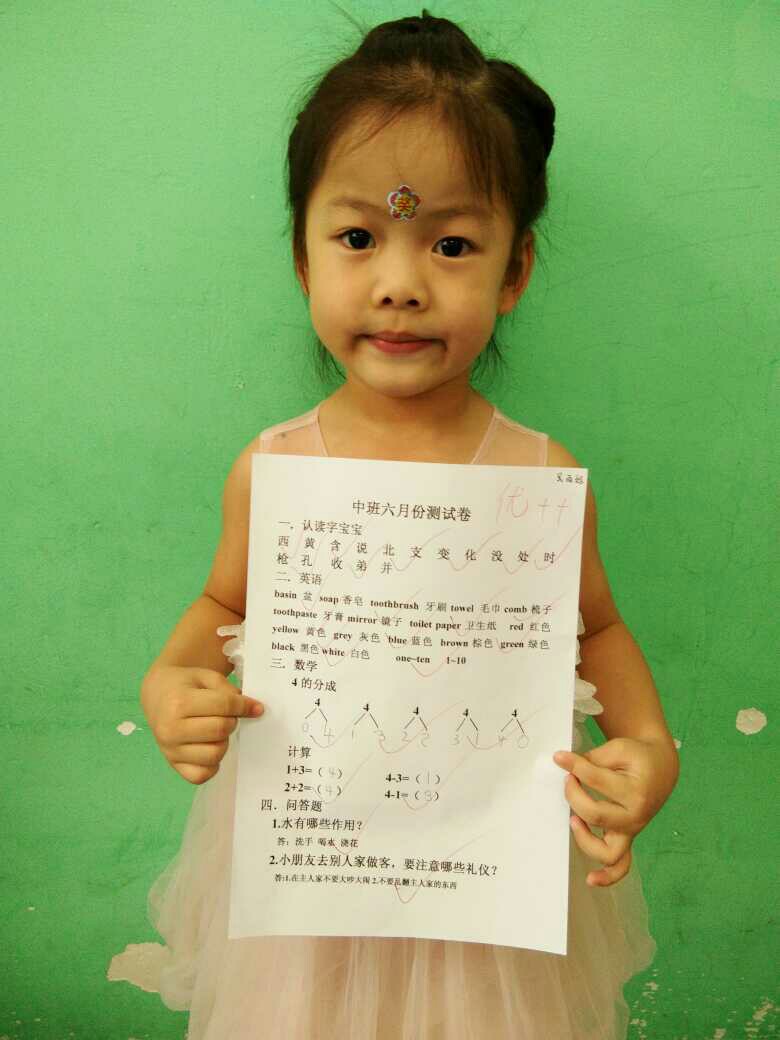 笑
优++
中班六月份测试卷
一．认读字宝宝
西 黄 含 说 北 支 变 化 没 处 时
枪 孔 收 弟 并
二．英语
basin 盆 soap 香皂 toothbrush 牙刷 towel 毛巾 comb 梳子
toothpaste 牙膏 mirror 镜子 toilet paper 卫生纸 red 红色
yellow 黄色 grey 灰色 blue 蓝色 brown 棕色 green 绿色
black 黑色 white 白色 one~ten 1~10
三．数学
4 的分成
4 4 4 4 4
0 4 1 3 2 2 3 1 4 0
计算
1+3=（4） 4-3=（1）
2+2=（4） 4-1=（3）
四．问答题
1.水有哪些作用？
答：洗手 喝水 浇花
2.小朋友去别人家做客，要注意哪些礼仪？
答:1.在主人家不要大吵大闹 2.不要乱翻主人家的东西